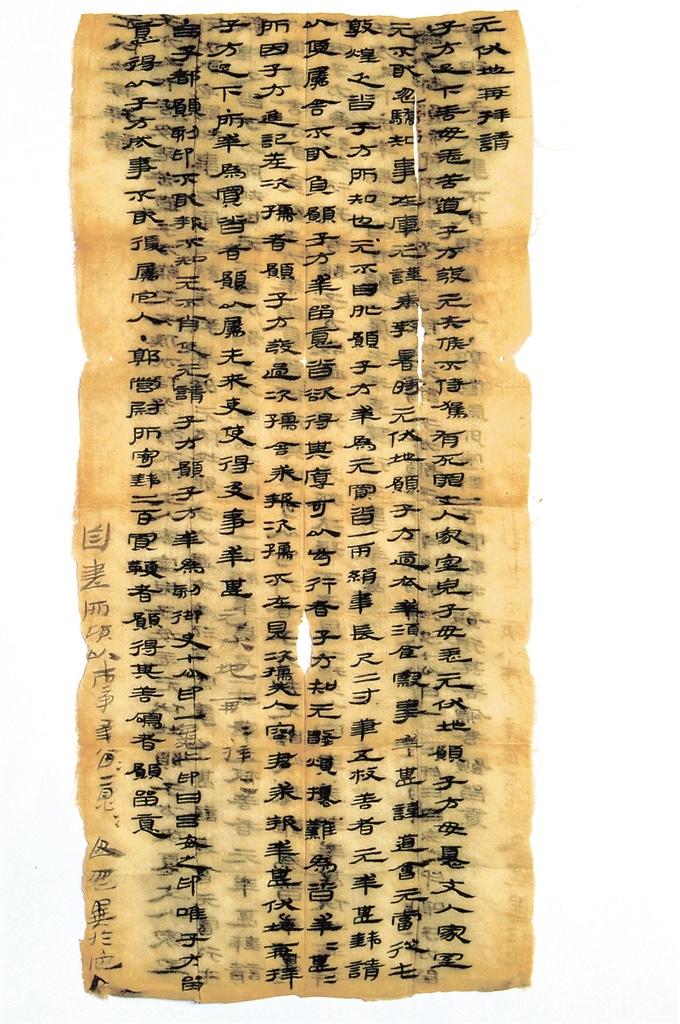 元伏地再拜請
子方足下善毋恙苦道子方發元失候不侍駕有死罪丈人家室兒子毋恙元伏地願子方毋憂丈人家室
元不敢忽驕知事在庫元謹奉教暑時元伏地願子方適衣幸酒食察事幸甚謹道會元當從屯
敦煌乏沓子方所知也元不自外願子方幸為元買沓一兩絹韋長尺二寸筆五枚善者元幸甚錢請
以便屬舍不敢負願子方幸留意沓欲得其厚可以步行者子方知元數煩擾難為沓幸〻甚〻
所因子方進記差次孺者願子方發過次孺舍求報次孺不在見次孺夫人容君求報幸甚伏地再拜
子方足下所幸為買沓者願以屬先來吏使得及事幸甚元伏地再〻拜〻
呂子都願刻印不敢報不知元不肖使元請子方願子方幸為刻御史七分印一龜上印曰呂安之印唯子方留
意得以子方成事不敢復屬它人·郭營尉所寄錢二百買鞭者願得其善鳴者願留意
自書所願以市事幸留〻意〻毋忽異於它人